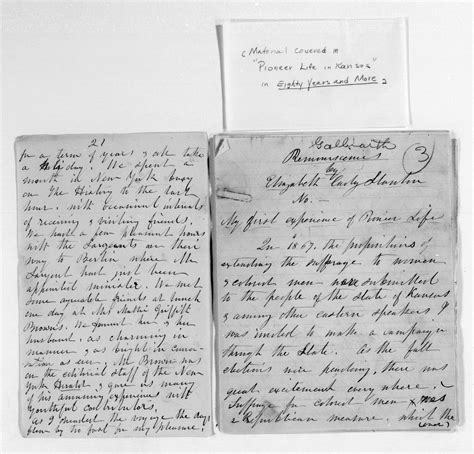 (Material covered in
"Pioneer Life in Kansas"
in Eighty Years and More)
21
for a term of years, & ask take
a holiday. We spent a
month in New York busy
on the History to the last
hour, with occasional intervals
of receiving & visiting friends.
We had a few pleasant hours
with the Sargents on their
way to Berlin where Mr
Sargent had just been
appointed minister. We met
some agreeable friends at lunch
one day at Mrs Mattie Griffith
Brown's. We found her & her
husband, as charming in
manner, & as bright in conver-
sation as ever. Mr Brown was
on the editorial staff of the New
York & gave us many
of his amusing experiences with
youthful contributors.
As I minded the voyage the days
flew by too fast for my pleasure.
Gallbraith
Reminiscences
by
Elizabeth Cady Stanton
No. —
3
My first experience of Pioneer Life
In 1867, the propositions of
extending the suffrage to women
& colored men were submitted
to the people of the State of Kansas
& among other eastern speakers I
was invited to make a campaign
through the State. As the fall
elections were pending, there was
great excitement every where.
Suffrage for colored men was
a Republican measure, which the
(over)